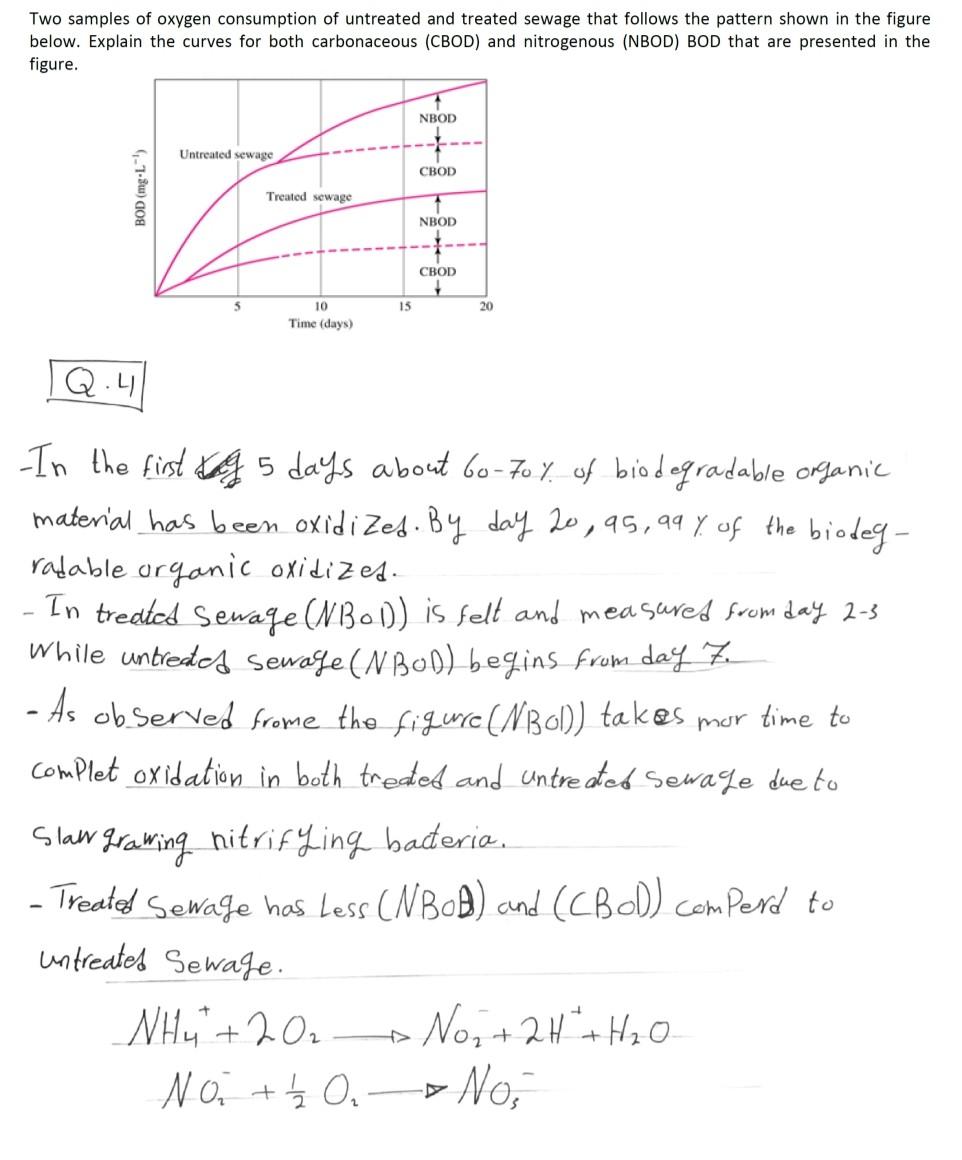 Two samples of oxygen consumption of untreated and treated sewage that follows the pattern shown in the figure
below. Explain the curves for both carbonaceous (CBOD) and nitrogenous (NBOD) BOD that are presented in the
figure.
BOD (mg·L⁻¹)
Untreated sewage
Treated sewage
NBOD
CBOD
NBOD
CBOD
5 10 15 20
Time (days)
Q.4
-In the first 5 days about 60-70% of biodegradable organic
material has been oxidized. By day 20, 95,99% of the biodeg-
radable organic oxidized.
- In treated sewage (NBOD) is felt and measured from day 2-3
While untreated sewage (NBOD) begins from day 7.
- As observed frome the figure (NBOD) takes mor time to
complet oxidation in both treated and untreated sewage due to
slaw grawing nitrifying bacteria.
- Treated sewage has Less (NBOD) and (CBOD) comperd to
untreated Sewage.
NH₄⁺ + 2O₂ → NO₂⁻ + 2H⁺ + H₂O
NO₂⁻ + ½ O₂ → NO₃⁻